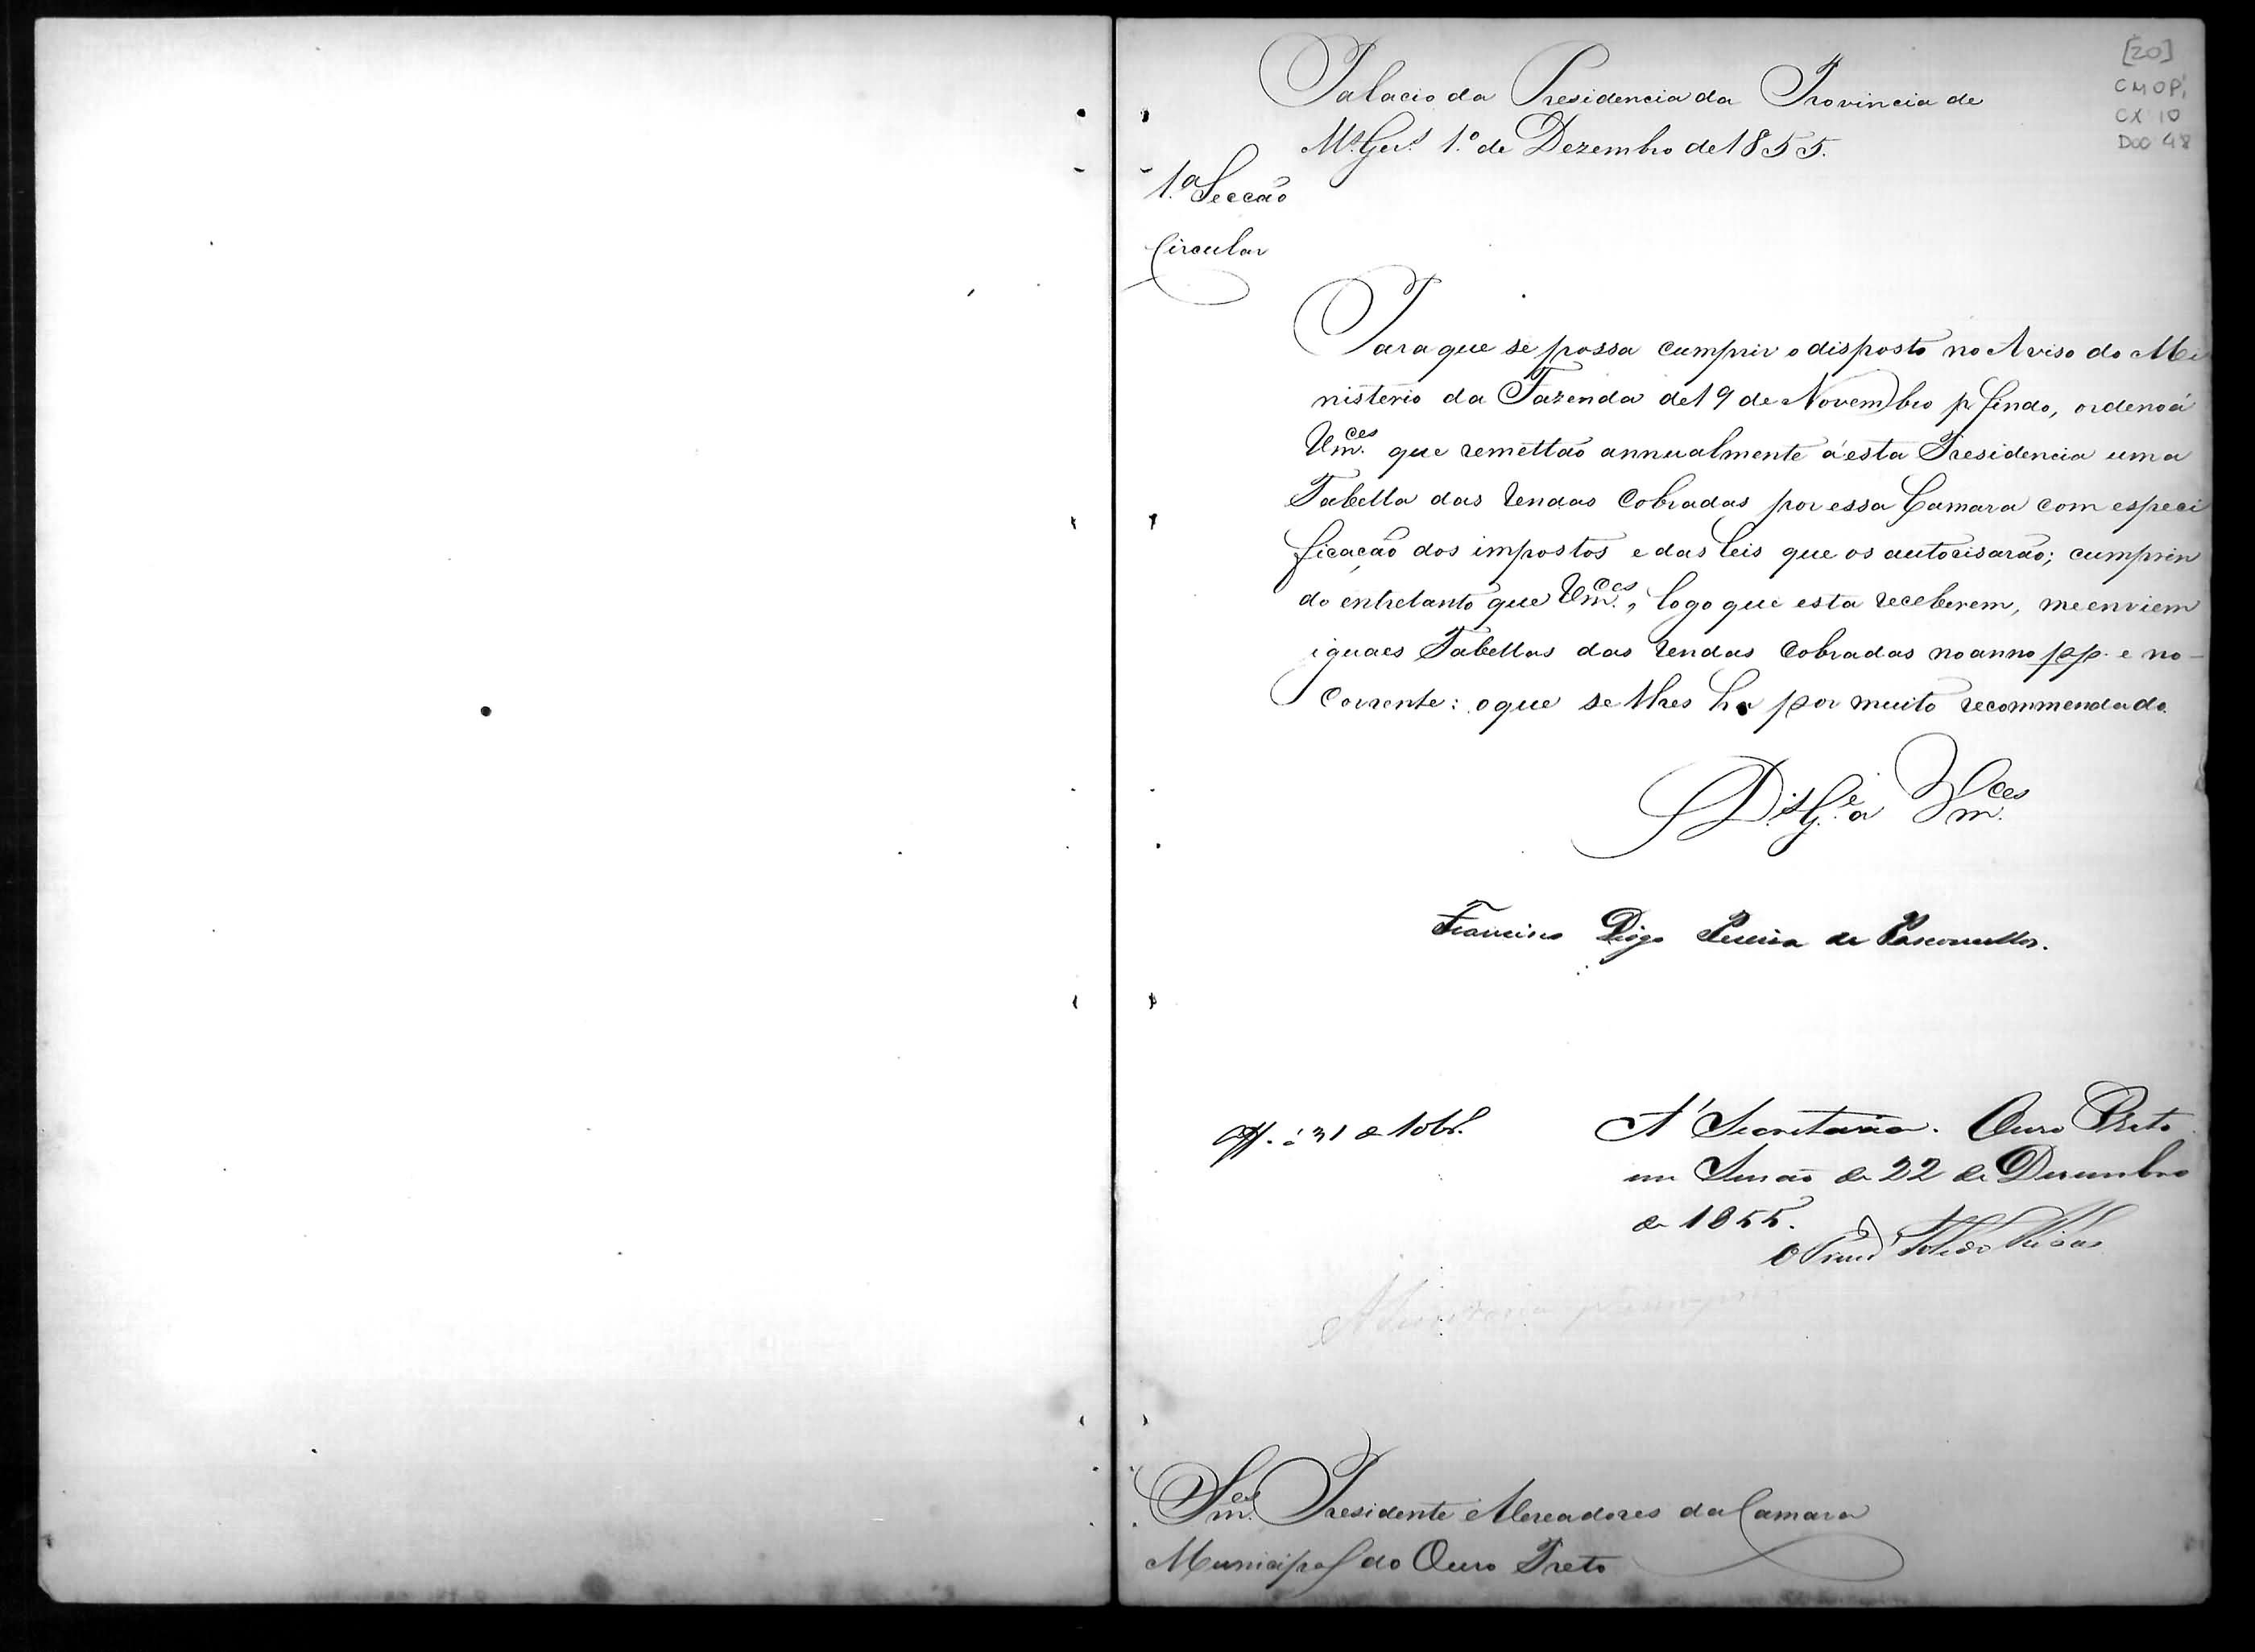 [20]
CMOP,
CX 10
DOC 48
Palacio da Presidencia da Provincia de
Ms. Ges. 1.º de Dezembro de 1855.
1.ª Secção
Circular
Para que se possa cumprir o disposto no Aviso do Mi
nisterio da Fazenda de 19 de Novembro p. findo, ordeno á
Vm.ces que remettão annualmente á esta Presidencia uma
Tabella das rendas cobradas por essa Camara com especi
ficação dos impostos e das leis que os autorisarão; cumprin
do entretanto que Vm.ces, logo que esta receberem, me enviem
iguaes Tabellas das rendas cobradas no anno pp. e no
corrente: o que se lhes ha por muito recommendado.
D.s G.e a Vm.ces
Francisco Diogo Pereira de Vasconcellos.
Off. á 31 de 10br.
A' Secretaria. Ouro Preto
em Sessão de 22 de Dezembro
de 1855.
A Secretaria
Snr.es Presidente e Vereadores da Camara
Municipal do Ouro Preto